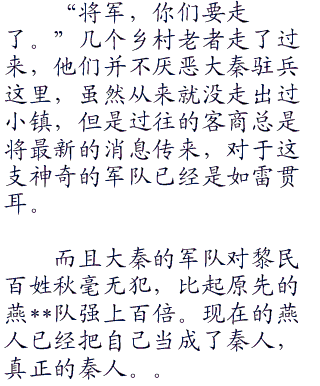 “将军，你们要走
了。”几个乡村老者走了过
来，他们并不厌恶大秦驻兵
这里，虽然从来就没走出过
小镇，但是过往的客商总是
将最新的消息传来，对于这
支神奇的军队已经是如雷贯
耳。
而且大秦的军队对黎民
百姓秋毫无犯，比起原先的
燕**队强上百倍。现在的燕
人已经把自己当成了秦人，
真正的秦人。。